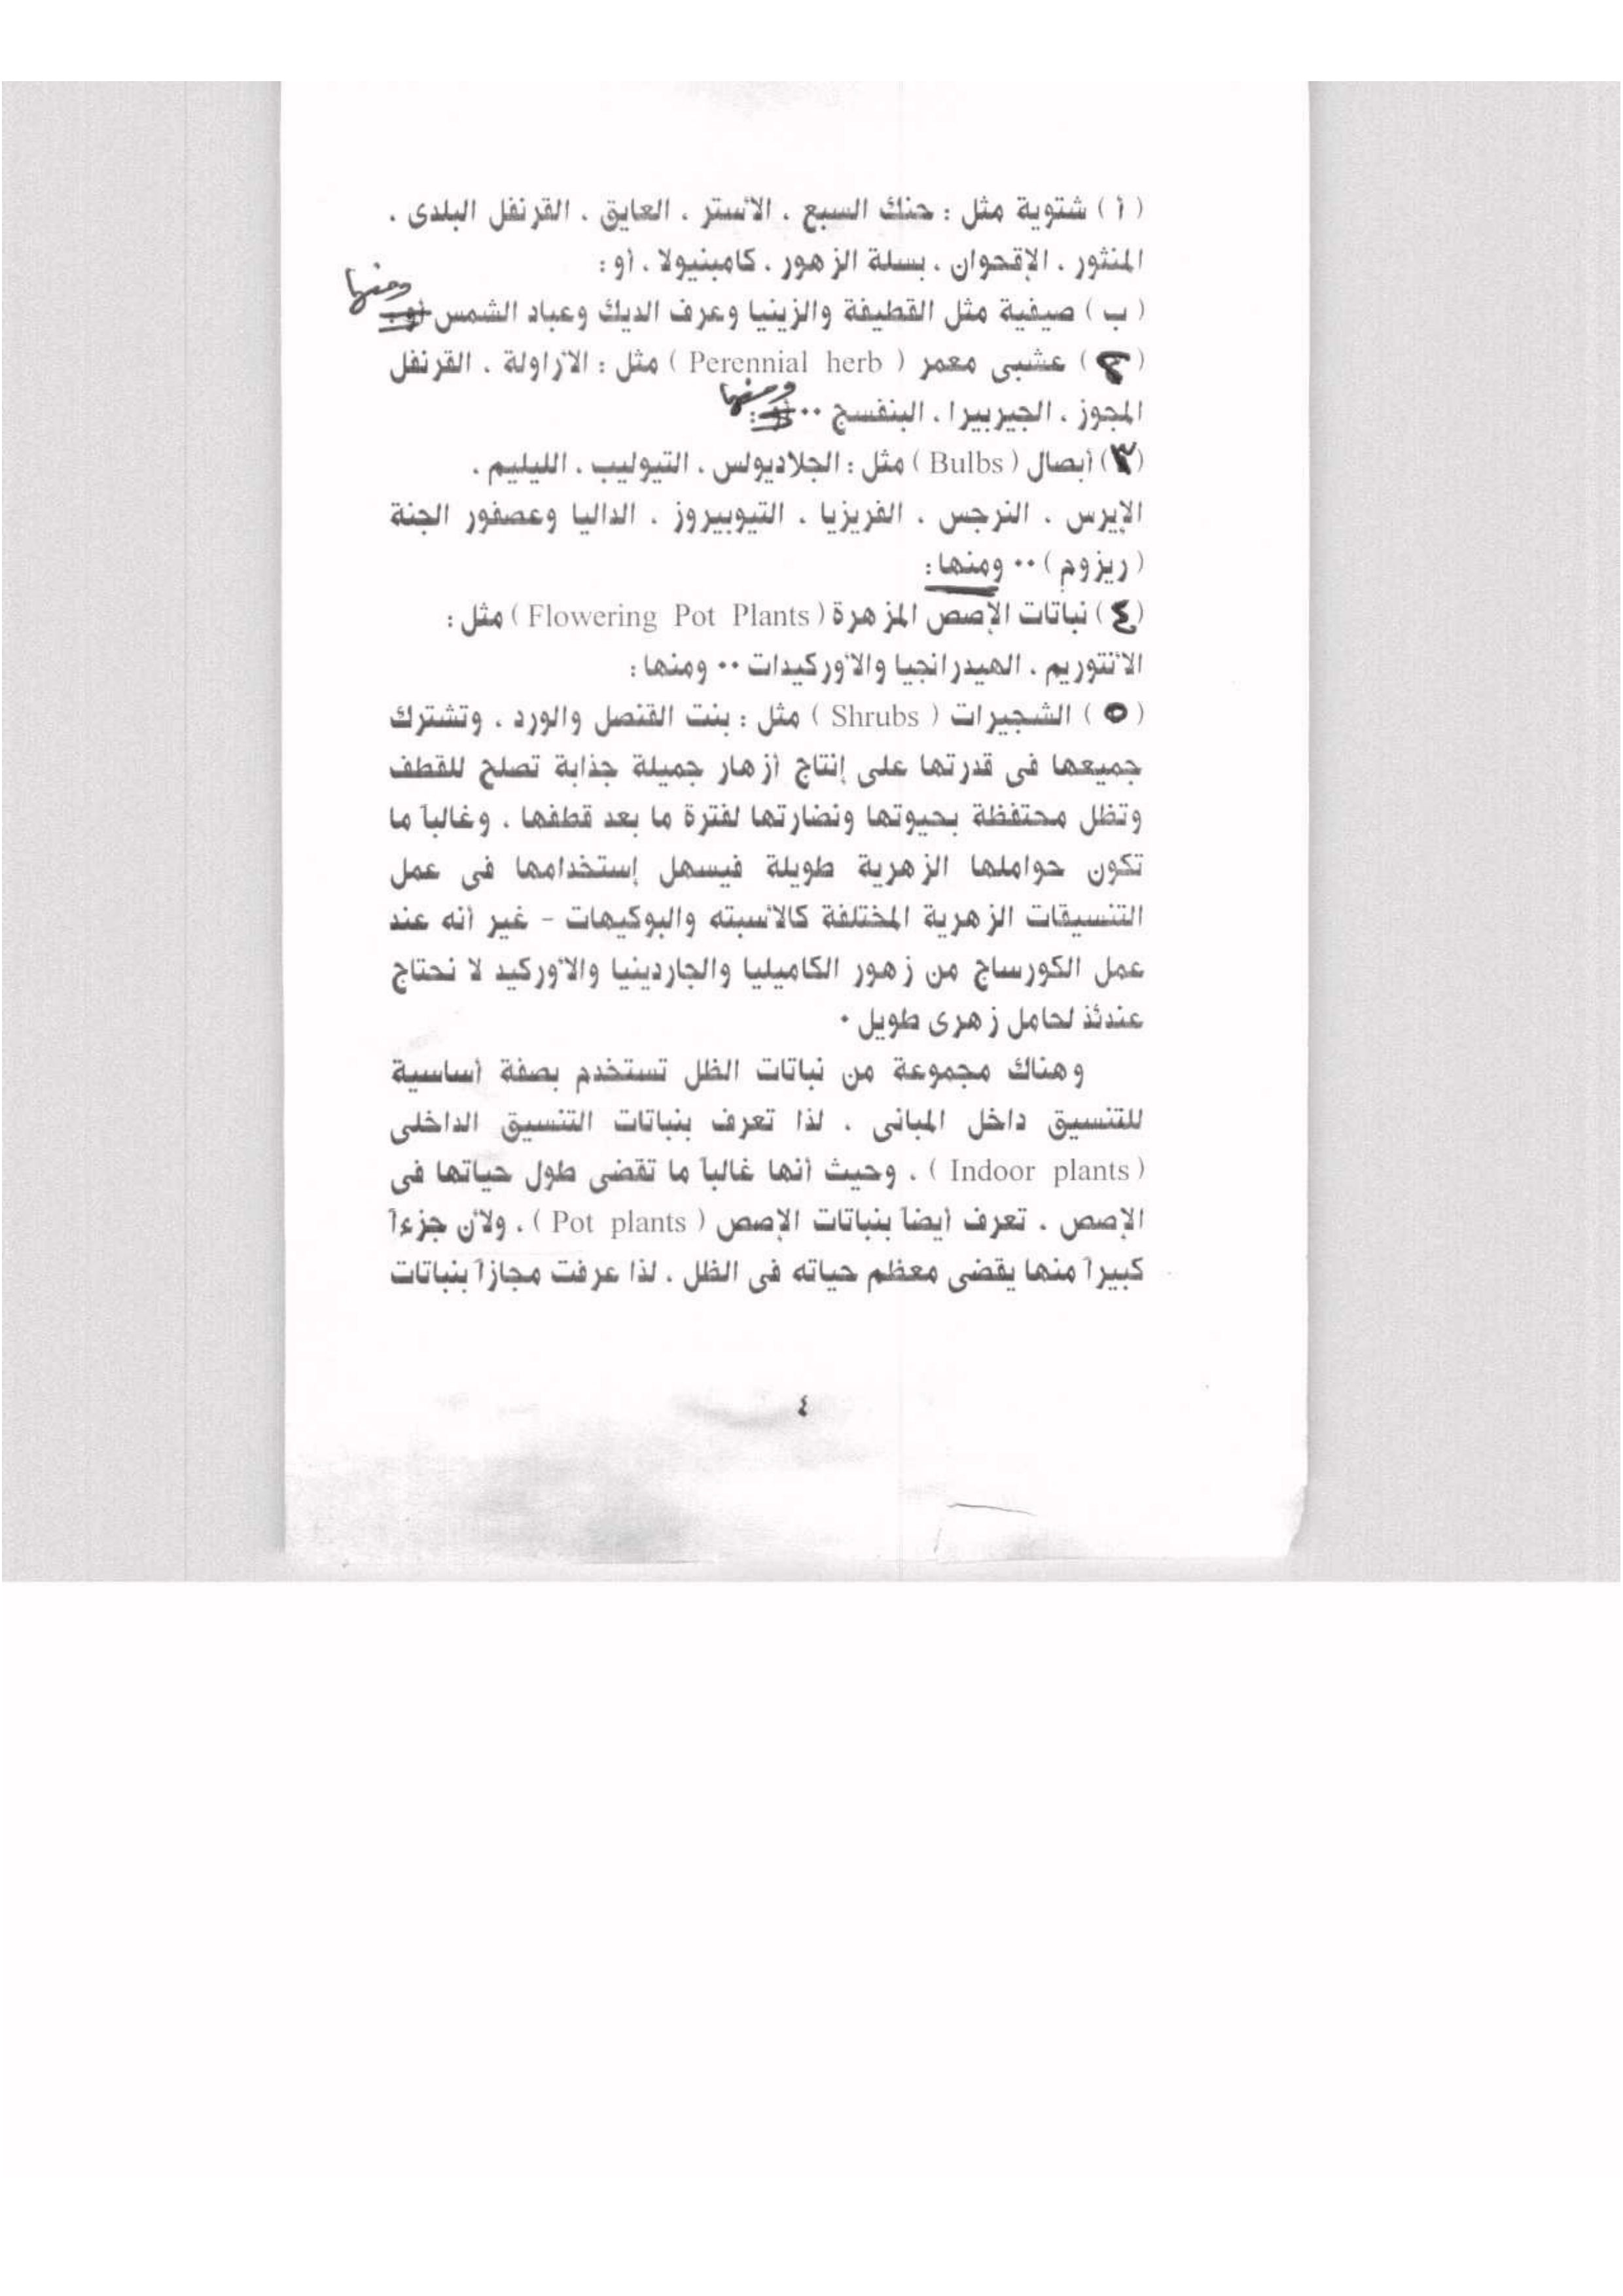 ( أ ) شتوية مثل : حنك السبع ، الأستر ، العايق ، القرنفل البلدى ،
المنثور ، الإقحوان ، بسلة الزهور ، كامبنيولا ، أو :
ومنها
( ب ) صيفية مثل القطيفة والزينيا وعرف الديك وعباد الشمس أو :
(٢) عشبى معمر ( Perennial herb ) مثل : الأراولة ، القرنفل
ومنها
المجوز ، الجيربيرا ، البنفسج ٠٠ أو :
(٣) أبصال ( Bulbs ) مثل : الجلاديولس ، التيوليب ، الليليم ،
الإيرس ، النرجس ، الفريزيا ، التيوبيروز ، الداليا وعصفور الجنة
( ريزوم ) ٠٠ ومنها :
(٤) نباتات الإصص المزهرة ( Flowering Pot Plants ) مثل :
الأنتوريم ، الهيدرانجيا والأوركيدات ٠٠ ومنها :
( ٥ ) الشجيرات ( Shrubs ) مثل : بنت القنصل والورد ، وتشترك
جميعها فى قدرتها على إنتاج أزهار جميلة جذابة تصلح للقطف
وتظل محتفظة بحيوتها ونضارتها لفترة ما بعد قطفها ، وغالباً ما
تكون حواملها الزهرية طويلة فيسهل إستخدامها فى عمل
التنسيقات الزهرية المختلفة كالأسبته والبوكيهات - غير أنه عند
عمل الكورساج من زهور الكاميليا والجاردينيا والأوركيد لا نحتاج
عندئذ لحامل زهرى طويل ٠
وهناك مجموعة من نباتات الظل تستخدم بصفة أساسية
للتنسيق داخل المبانى ، لذا تعرف بنباتات التنسيق الداخلى
( Indoor plants ) ، وحيث أنها غالباً ما تقضى طول حياتها فى
الإصص ، تعرف أيضاً بنباتات الإصص ( Pot plants ) ، ولأن جزءاً
كبيراً منها يقضى معظم حياته فى الظل ، لذا عرفت مجازاً بنباتات
٤